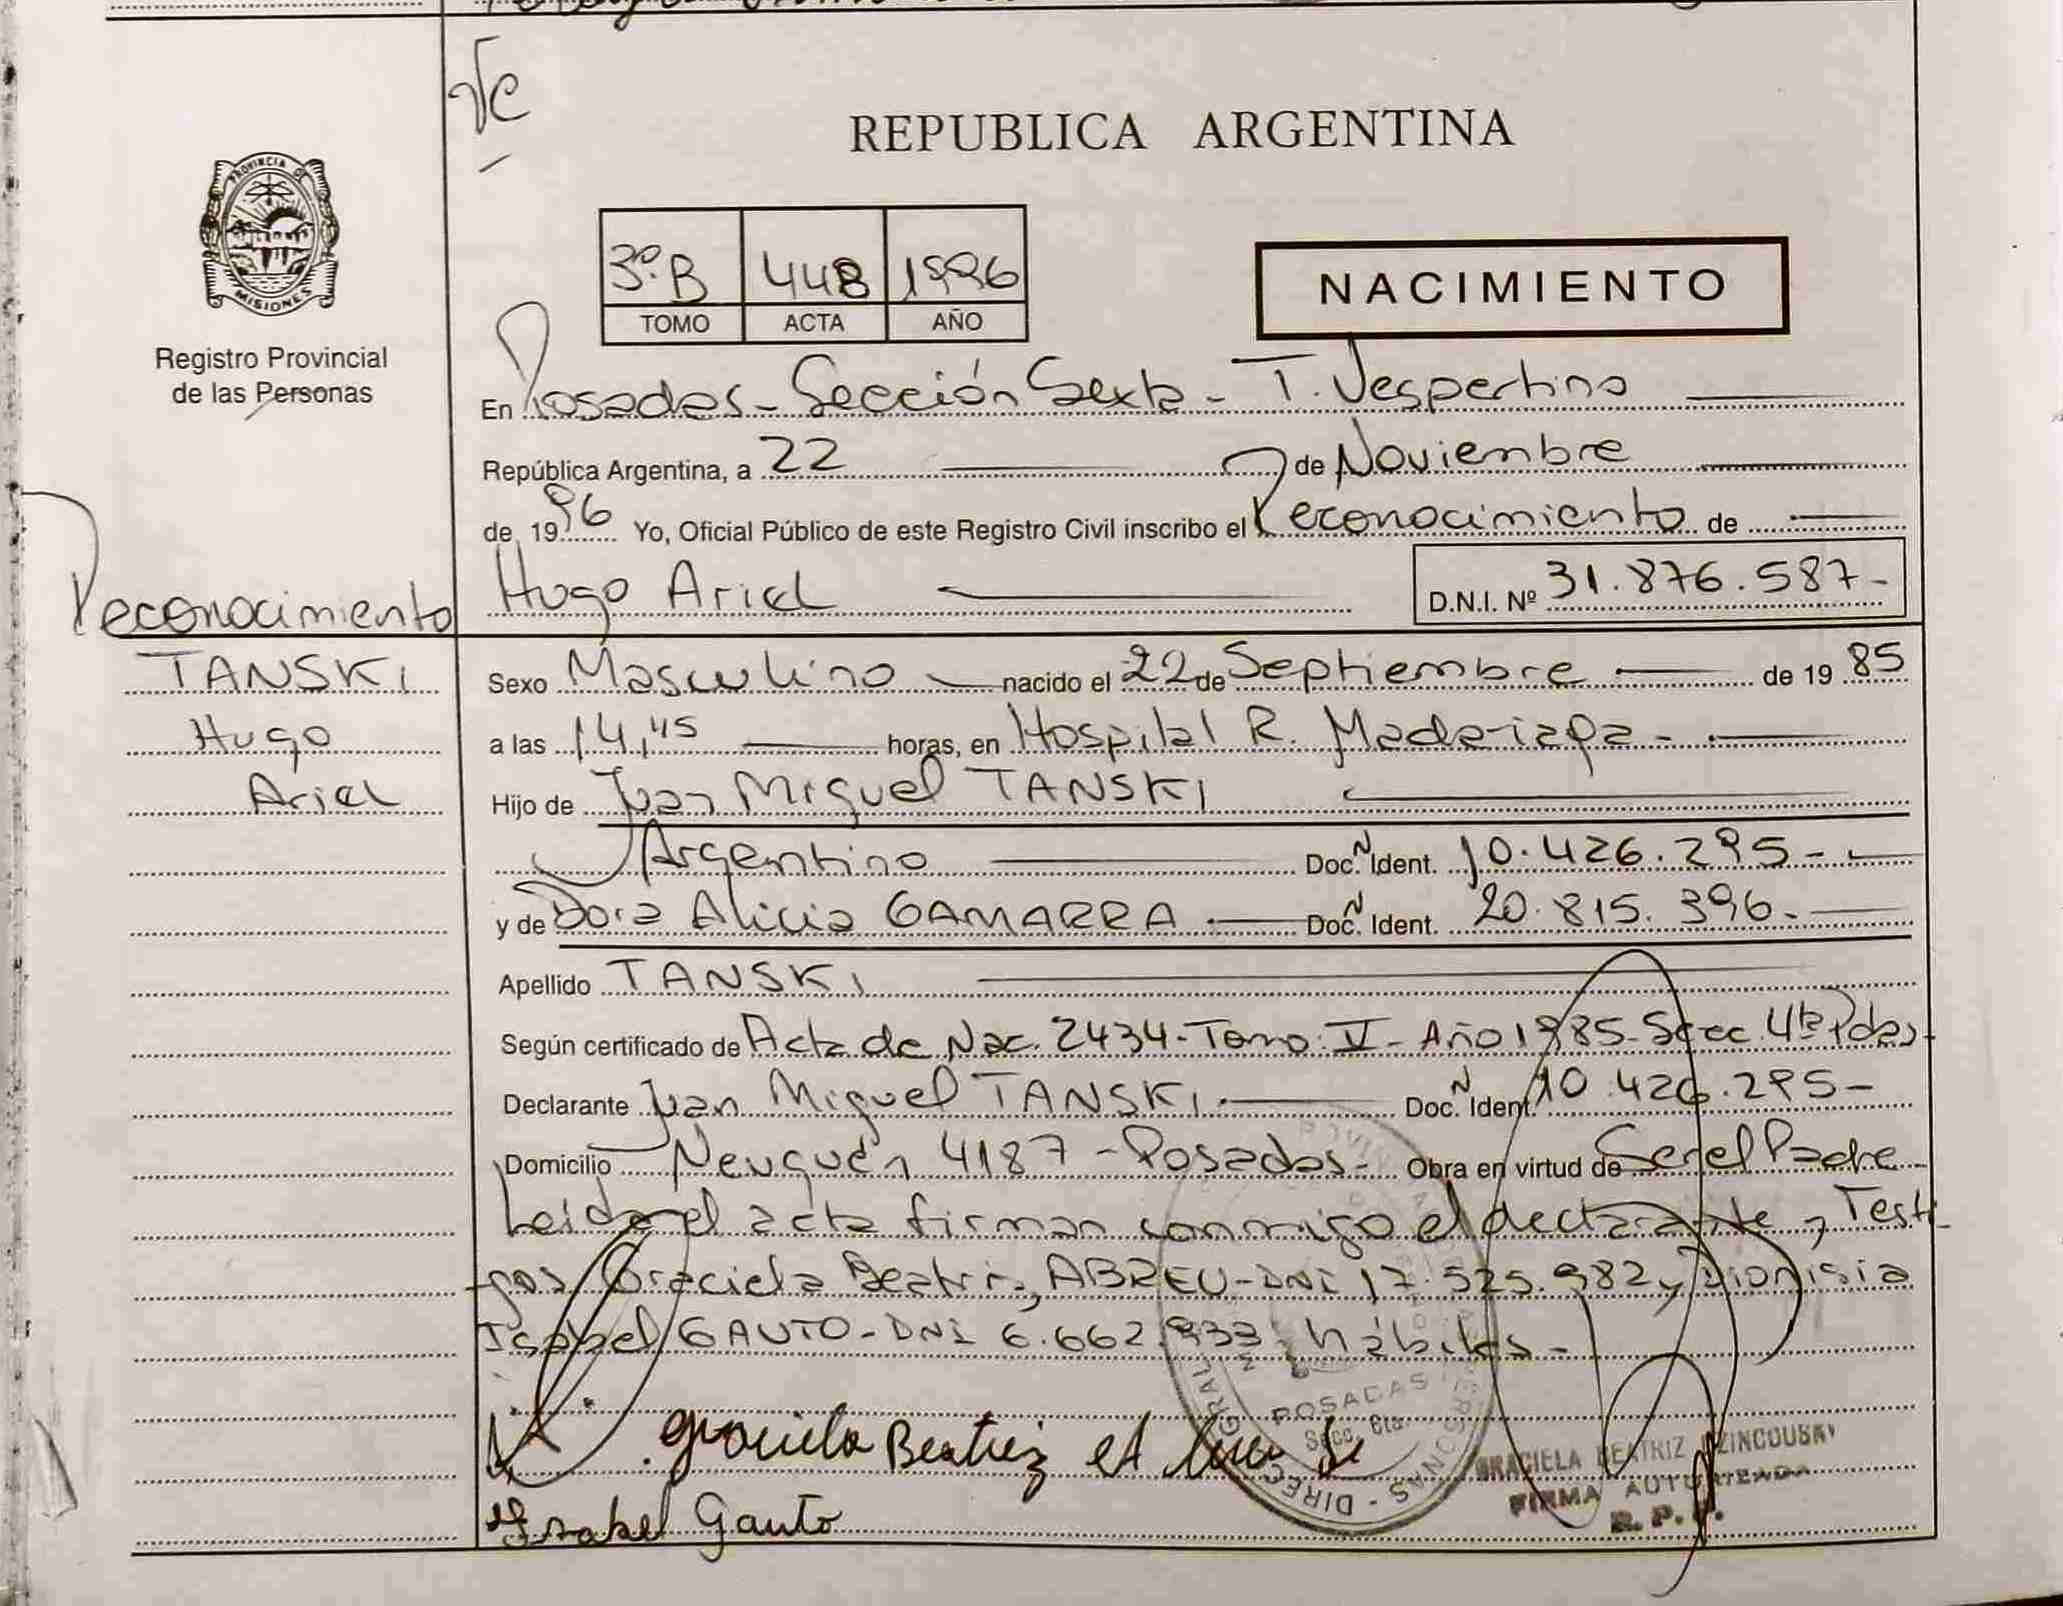 REPUBLICA ARGENTINA
PROVINCIA DE
MISIONES
Registro Provincial
de las Personas
3º.B 448 1996
TOMO ACTA AÑO
NACIMIENTO
En Posadas - Sección Sexta - T. Vespertino
República Argentina, a 22 de Noviembre
de 1996 Yo, Oficial Público de este Registro Civil inscribo el Reconocimiento de
Hugo Ariel D.N.I. Nº 31.876.587-
Reconocimiento
TANSKI
Hugo
Ariel
Sexo Masculino nacido el 22 de Septiembre de 1985
a las 14,45 horas, en Hospital R. Madariaga -
Hijo de Juan Miguel TANSKI
Argentino Doc. N Ident. 10.426.295-
y de Dora Alicia GAMARRA Doc. N Ident. 20.815.396.-
Apellido TANSKI
Según certificado de Acta de Nac. 2434-Tomo: V- Año 1985-Secc. 4ta Pdas-
Declarante Juan Miguel TANSKI Doc. N Ident. 10.426.295-
Domicilio Neuquén 4187 - Posadas- Obra en virtud de Ser el Padre-
Leida el acta firman conmigo el declarante y Testi-
-gos Graciela Beatriz ABREU-DNI 17.525.982 y Dionisia
Isabel GAUTO-DNI 6.662.933, hábiles -
Graciela Beatriz
Isabel Gauto
POSADAS
Secc. 6ta.
GRACIELA BEATRIZ
FIRMA AUTORIZADA
R. P. P.